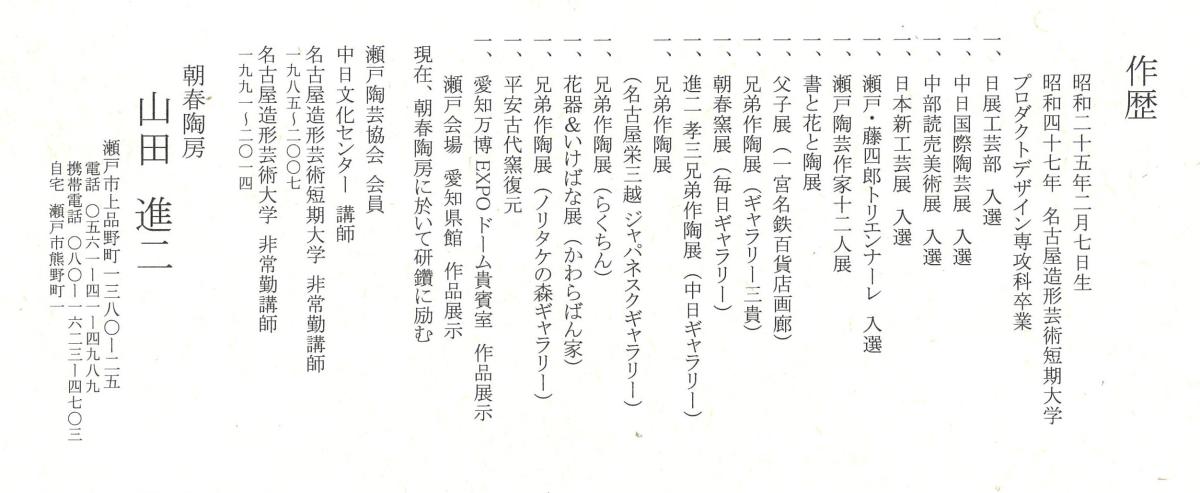 作歴
昭和二十五年二月七日生
昭和四十七年　名古屋造形芸術短期大学
プロダクトデザイン専攻科卒業
一、日展工芸部　入選
一、中日国際陶芸展　入選
一、中部読売美術展　入選
一、日本新工芸展　入選
一、瀬戸・藤四郎トリエンナーレ　入選
一、瀬戸陶芸作家十二人展
一、書と花と陶展
一、父子展（一宮名鉄百貨店画廊）
一、兄弟作陶展（ギャラリー三貴）
一、朝春窯展（毎日ギャラリー）
一、進二 孝三兄弟作陶展（中日ギャラリー）
一、兄弟作陶展
（名古屋栄三越 ジャパネスクギャラリー）
一、兄弟作陶展（らくちん）
一、花器＆いけばな展（かわらばん家）
一、兄弟作陶展（ノリタケの森ギャラリー）
一、平安古代窯復元
一、愛知万博 EXPO ドーム貴賓室　作品展示
瀬戸会場　愛知県館　作品展示
現在、朝春陶房に於いて研鑽に励む
瀬戸陶芸協会 会員
中日文化センター　講師
名古屋造形芸術短期大学　非常勤講師
一九八五〜二〇〇七
名古屋造形芸術大学　非常勤講師
一九九一〜二〇一四
朝春陶房
山田　進二
瀬戸市上品野町一三八〇ー二五
電話　〇五六一ー四一ー四九八九
携帯電話　〇八〇ー一六二三ー四七〇三
自宅　瀬戸市熊野町一